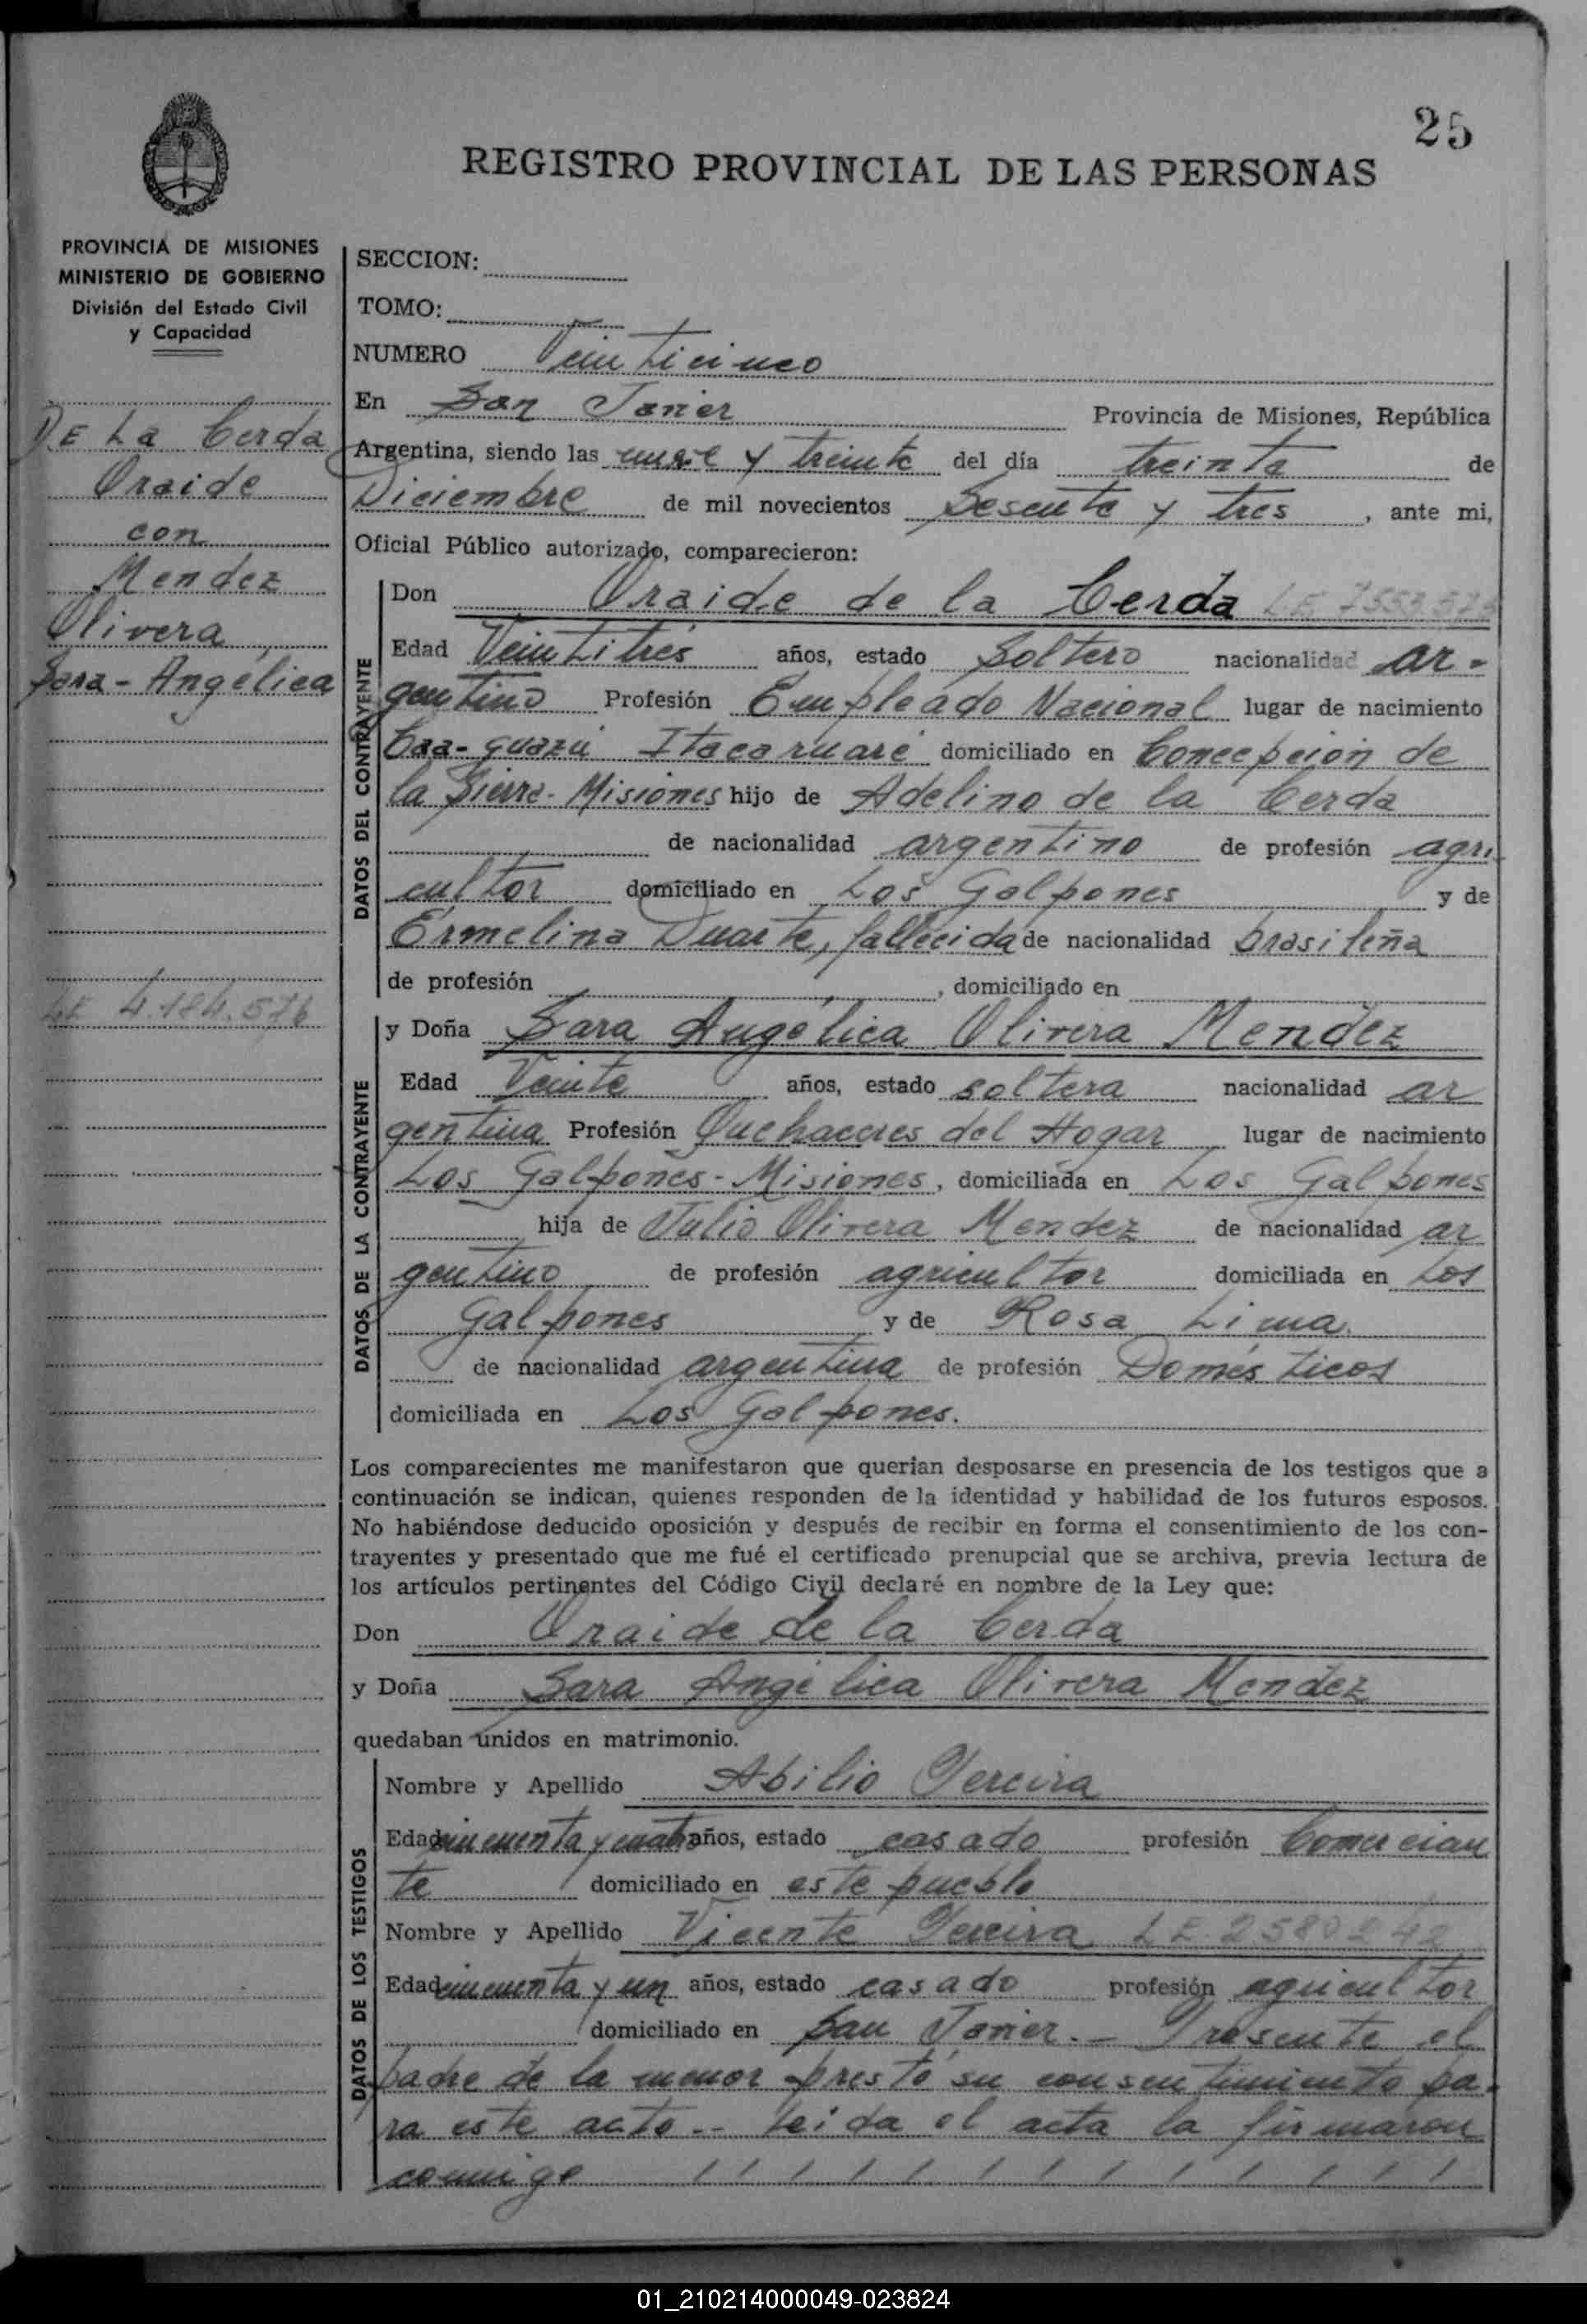 25
REGISTRO PROVINCIAL DE LAS PERSONAS
PROVINCIA DE MISIONES
MINISTERIO DE GOBIERNO
División del Estado Civil
y Capacidad
De La Cerda
Oraide
con
Mendez
Olivera
Sara - Angélica
LE 4.184.576
SECCION:
TOMO:
NUMERO Veinticinco
En San Javier Provincia de Misiones, República
Argentina, siendo las nueve y treinta del día treinta de
Diciembre de mil novecientos Sesenta y tres, ante mi,
Oficial Público autorizado, comparecieron:
DATOS DEL CONTRAYENTE
Don Oraide de la Cerda LE 7553575
Edad Veintitrés años, estado Soltero nacionalidad ar-
gentino Profesión Empleado Nacional lugar de nacimiento
Caa-guazú Itacaruaré domiciliado en Concepción de
la Sierra - Misiones hijo de Adelino de la Cerda
de nacionalidad argentino de profesión agri
cultor domiciliado en Los Galpones y de
Ermelina Duarte, fallecida de nacionalidad brasileña
de profesión , domiciliado en
DATOS DE LA CONTRAYENTE
y Doña Sara Angélica Olivera Mendez
Edad Veinte años, estado soltera nacionalidad ar
gentina Profesión Quehaceres del Hogar lugar de nacimiento
Los Galpones - Misiones, domiciliada en Los Galpones
hija de Julio Olivera Mendez de nacionalidad ar
gentino de profesión agricultor domiciliada en Los
Galpones y de Rosa Lima.
de nacionalidad argentina de profesión Domésticos
domiciliada en Los Galpones.
Los comparecientes me manifestaron que querían desposarse en presencia de los testigos que a
continuación se indican, quienes responden de la identidad y habilidad de los futuros esposos.
No habiéndose deducido oposición y después de recibir en forma el consentimiento de los con-
trayentes y presentado que me fué el certificado prenupcial que se archiva, previa lectura de
los artículos pertinentes del Código Civil declaré en nombre de la Ley que:
Don Oraide de la Cerda
y Doña Sara Angélica Olivera Mendez
quedaban unidos en matrimonio.
DATOS DE LOS TESTIGOS
Nombre y Apellido Abilio Pereira
Edad cincuenta y cuatro años, estado casado profesión Comercian
te domiciliado en este pueblo
Nombre y Apellido Vicente Pereira LE 2580242
Edad cincuenta y un años, estado casado profesión agricultor
domiciliado en San Javier. - Presente el
padre de la menor prestó su consentimiento pa-
ra este acto.- Leida el acta la firmaron
conmigo / / / / / / / / / / / / /
01_210214000049-023824